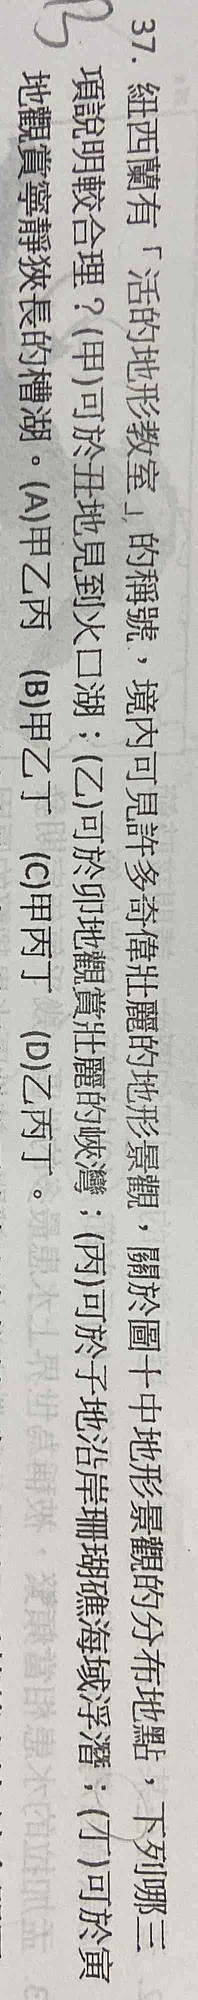 B
37. 紐西蘭有「活的地形教室」的稱號，境內可見許多奇偉壯麗的地形景觀，關於圖十中地形景觀的分布地點，下列哪三
項說明較合理？(甲)可於丑地見到火口湖；(乙)可於卯地觀賞壯麗的峽灣；(丙)可於子地沿岸珊瑚礁海域浮潛；(丁)可於寅
地觀賞寧靜狹長的槽湖。(A)甲乙丙 (B)甲乙丁 (C)甲丙丁 (D)乙丙丁。